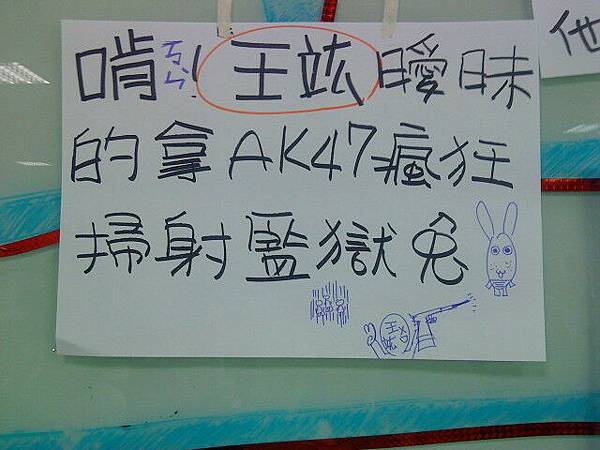 啃ㄎㄣˇ! 王竑曖昧
的拿AK47瘋狂
掃射監獄兔
王竑
他